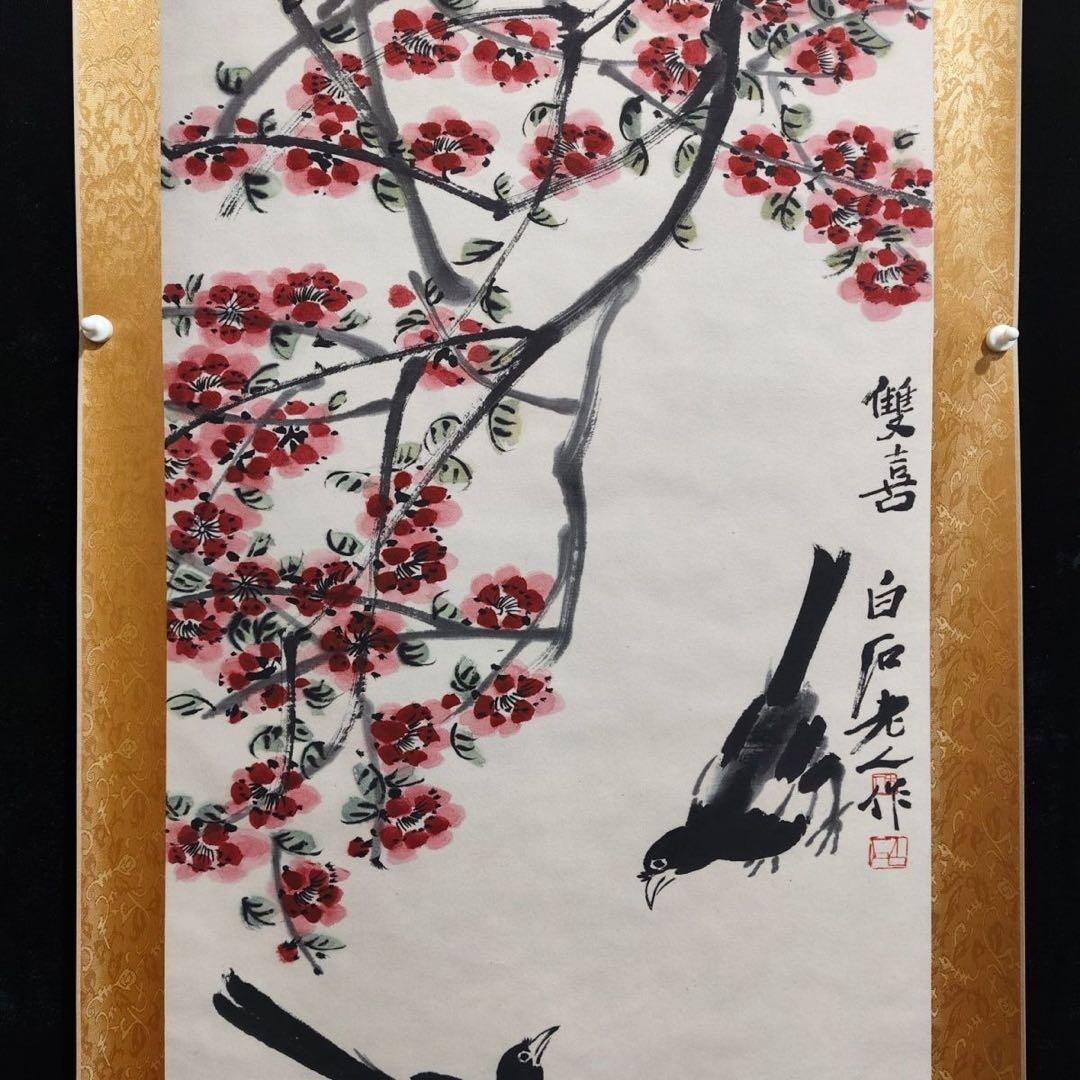 雙喜
白石老人作